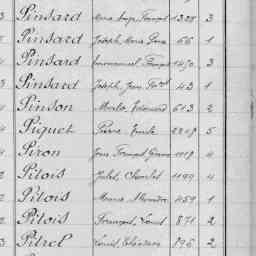 Pinsard Marie Ange François 1328 3
Pinsard Joseph Marie Pierre 66 1
Pinsard Emmanuel François 1450 3
Pinsard Joseph Jean 43 1
Pinson Alexis Edouard 613 2
Piquet Pierre Emile 2249 5
Piron Jean François 1119 4
Pitois Jules Charles 1199 4
Pitois Marie Alexandre 459 1
Pitois François Louis 871 2
Pitrel Louis 896 2